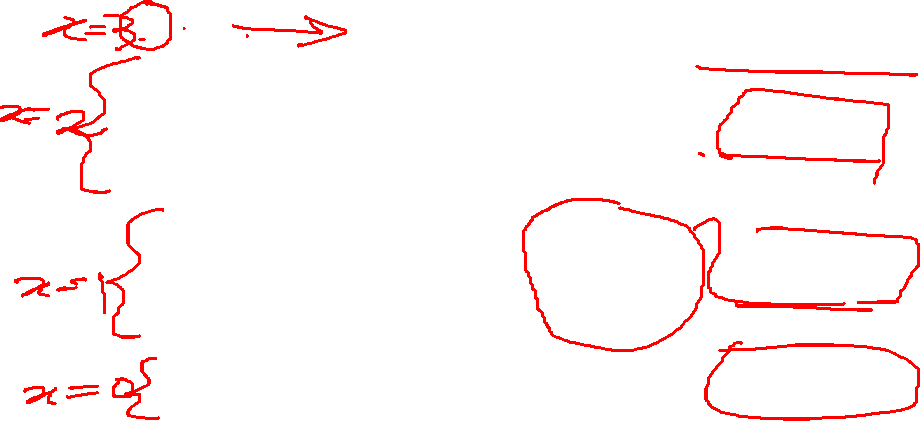 x=3
x=2
x=1
x=0